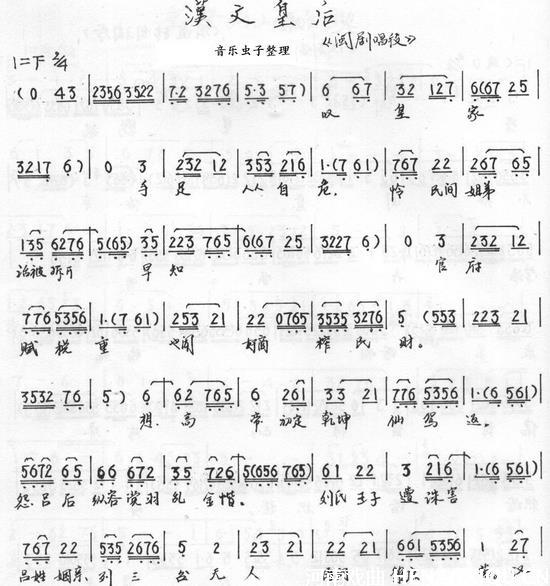 漢文皇后
《闽剧唱段》
音乐虫子整理
1=下 2/4
(0 43 | 2356 3522 | 7·2 3276 | 5·3 57) | 6 67 | 32 127 | 6(67 25
叹 皇 家
3217 6) | 0 3 | 232 12 | 353 216 | 1·(7 61) | 767 22 | 267 65
手 足 人人自 危. 怜 民间 姐弟
135 6276 | 5(65) 35 | 223 765 | 6(67 25 | 3227 6) | 0 3 | 232 12
活被拆 早知 官府
776 5356 | 1·(7 61) | 253 21 | 22 0765 | 3535 3276 | 5 (553 | 223 21
赋税 重 榨民 财.
3532 76 | 5) 6 | 62 765 | 6 261 | 33 21 | 776 5356 | 1·(6 561)
想 高 帝 初定 乾坤 仙驾 返.
5672 65 | 66 672 | 35 726 | 5(656 765) | 61 22 | 3 216 | 1·(6 561)
怨吕后 纵容党羽 乱 刘氏王子 遭 诛害
767 22 | 535 2676 | 5 2 | 23 21 | 22 | 661 5356 | 1 27
吕姓 姻亲 列 三 台 无 人